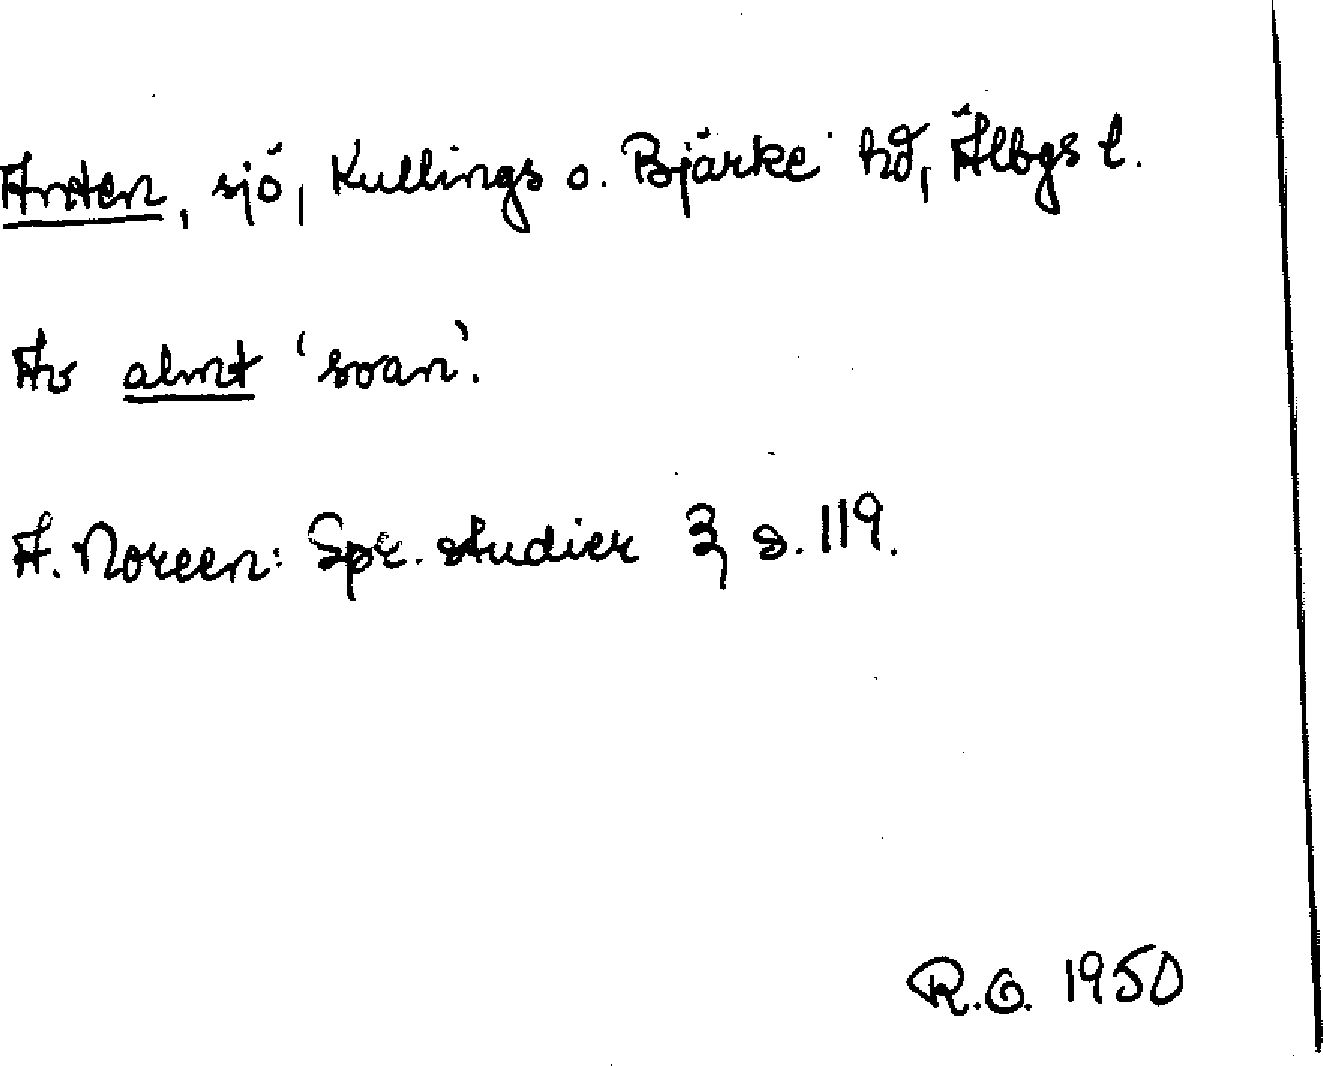 Anten, sjö, Kullings o. Bjärke hd, Älbgs l.
Av almt 'svan'.
A. Noreen: Spr. studier 3, s. 119.
R.O. 1950